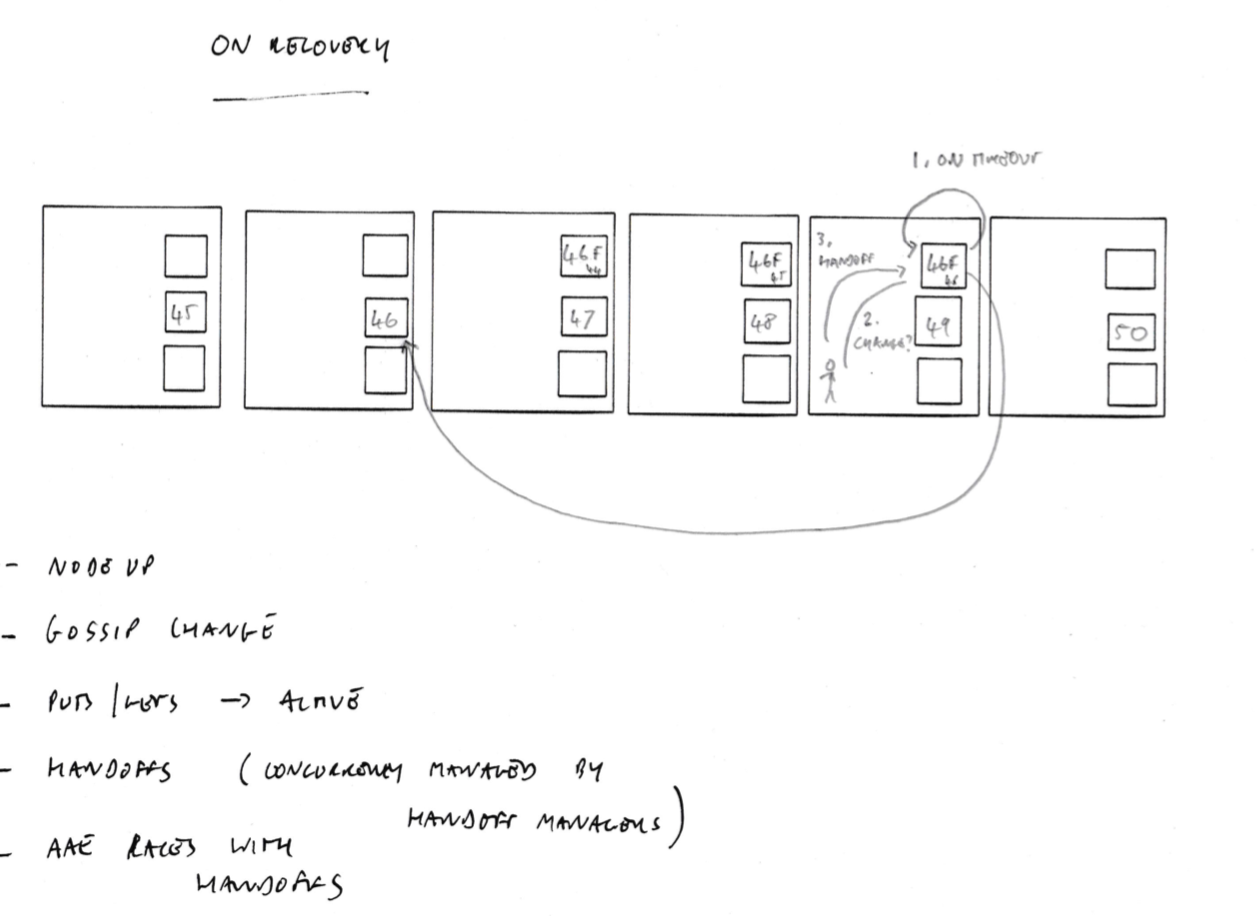 ON RECOVERY
1. ON TIMEOUT
3.
HANDOFF
46F
44
46F
45
46F
46
45
46
47
48
2.
CHANGE?
49
50
- NODE UP
- GOSSIP CHANGE
- PUTS/GETS → ACTIVE
- HANDOFFS (CONCURRENCY MANAGED BY
HANDOFF MANAGERS)
- AAE RACES WITH
HANDOFFS